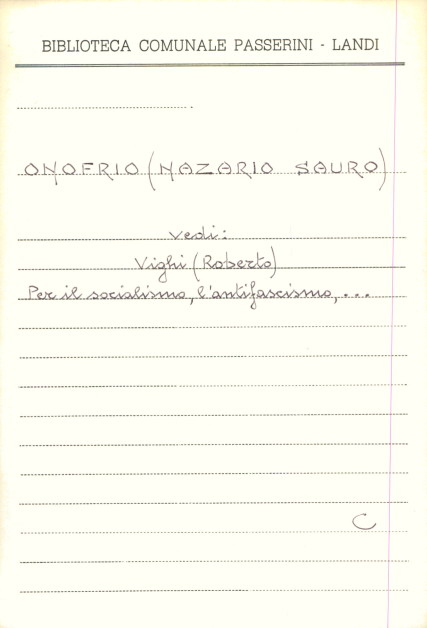 BIBLIOTECA COMUNALE PASSERINI - LANDI
ONOFRIO (NAZARIO SAURO)
vedi:
Vighi (Roberto)
Per il socialismo, l'antifascismo, ...
C